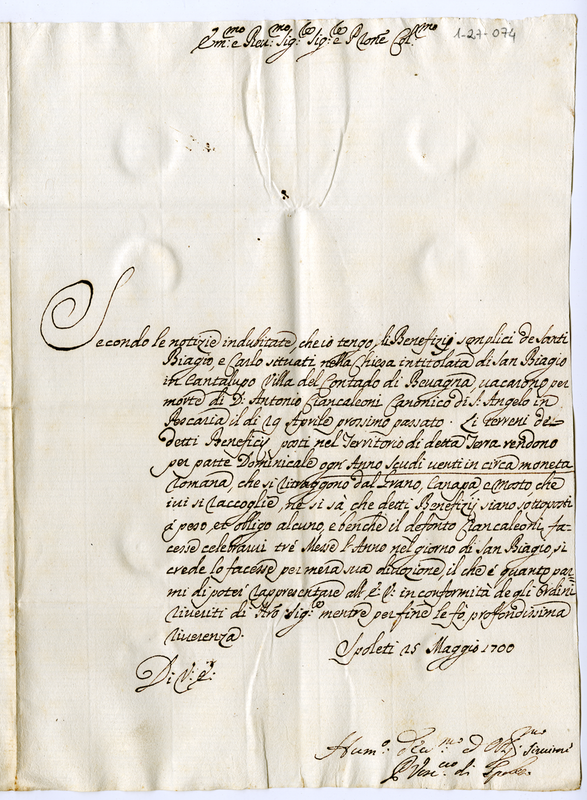 Em:mo e Reu:mo Sig:re Sig:re e P:rone Col:mo
1-27-074
Secondo le notizie indubitate, che io tengo, li Benefizij semplici de Santi
Biagio, e Carlo situati nella Chiesa intitolata di San Biagio
in Cantalupo Villa del Contado di Beuagna, uacarono per
morte di D: Antonio Ciancaleoni Canonico di S. Angelo in
Pescaria il di 19 Aprile prossimo passato. Li terreni de
detti Beneficij posti nel Territorio di detta Terra rendono
per parte Dominicale ogn'Anno Scudi uenti in circa moneta
Romana, che si ritraggono dal Grano, Canapa e Mosto, che
iui si raccoglie, ne si sà, che detti Benefizij siano sottoposti
à peso, et obligo alcuno, e benche il defonto Ciancaleoni, fa-
cesse celebrarui trè Messe l'Anno nel giorno di San Biagio, si
crede lo facesse per mera sua diuozione, il che è quanto par-
mi di poter rappresentare all' E: V: in conformità de gli Ordini
riueriti di sig:re mentre per fine le fò profondissima
riuerenza.
Spoleti 15 Maggio 1700
Di V: E:
Hum:o ed Obl:mo
di Spoleti